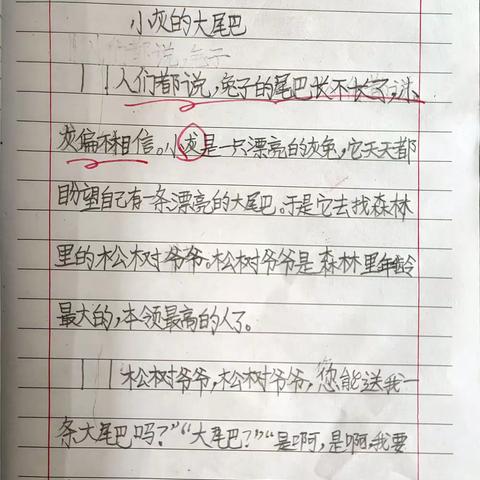 小灰的大尾巴
人们都说,兔子的尾巴长不长了,小
灰偏不相信。小灰是一只漂亮的灰兔,它天天都
盼望自己有一条漂亮的大尾巴。于是它去找森林
里的松树爷爷。松树爷爷是森林里年龄
最大的,本领最高的人了。
松树爷爷,松树爷爷,您能送我一
条大尾巴吗?”“大尾巴?”“是啊,是啊,我要